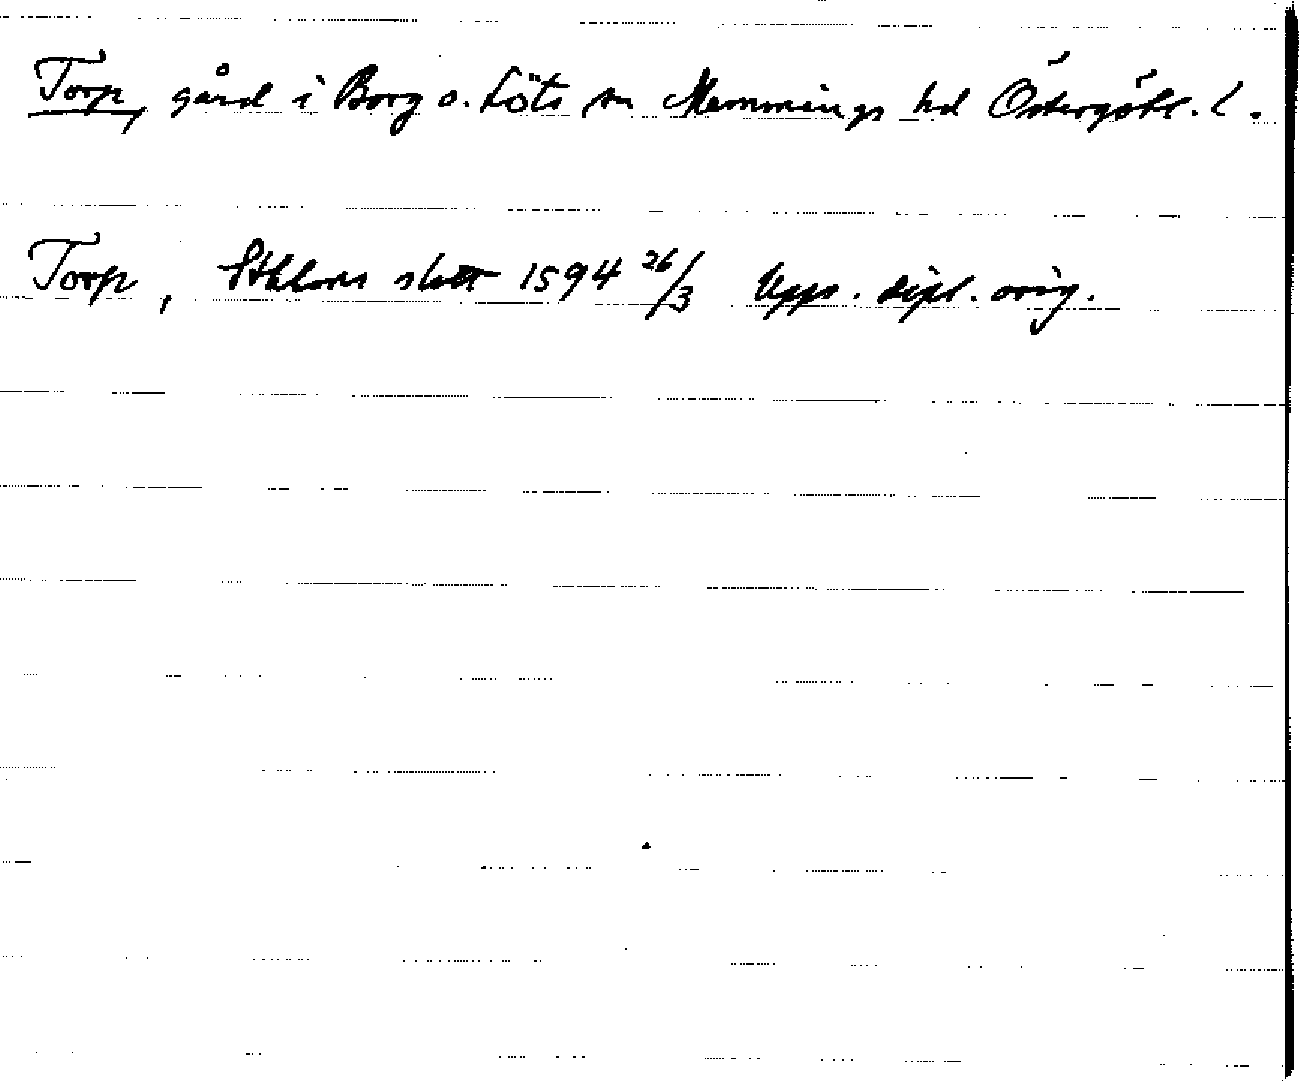 Torp, gård i Borg o. Löts sn Memmings hd Östergötl. l.
Torp, Sthlms slott 1594 26/3 Upps. dipl. orig.